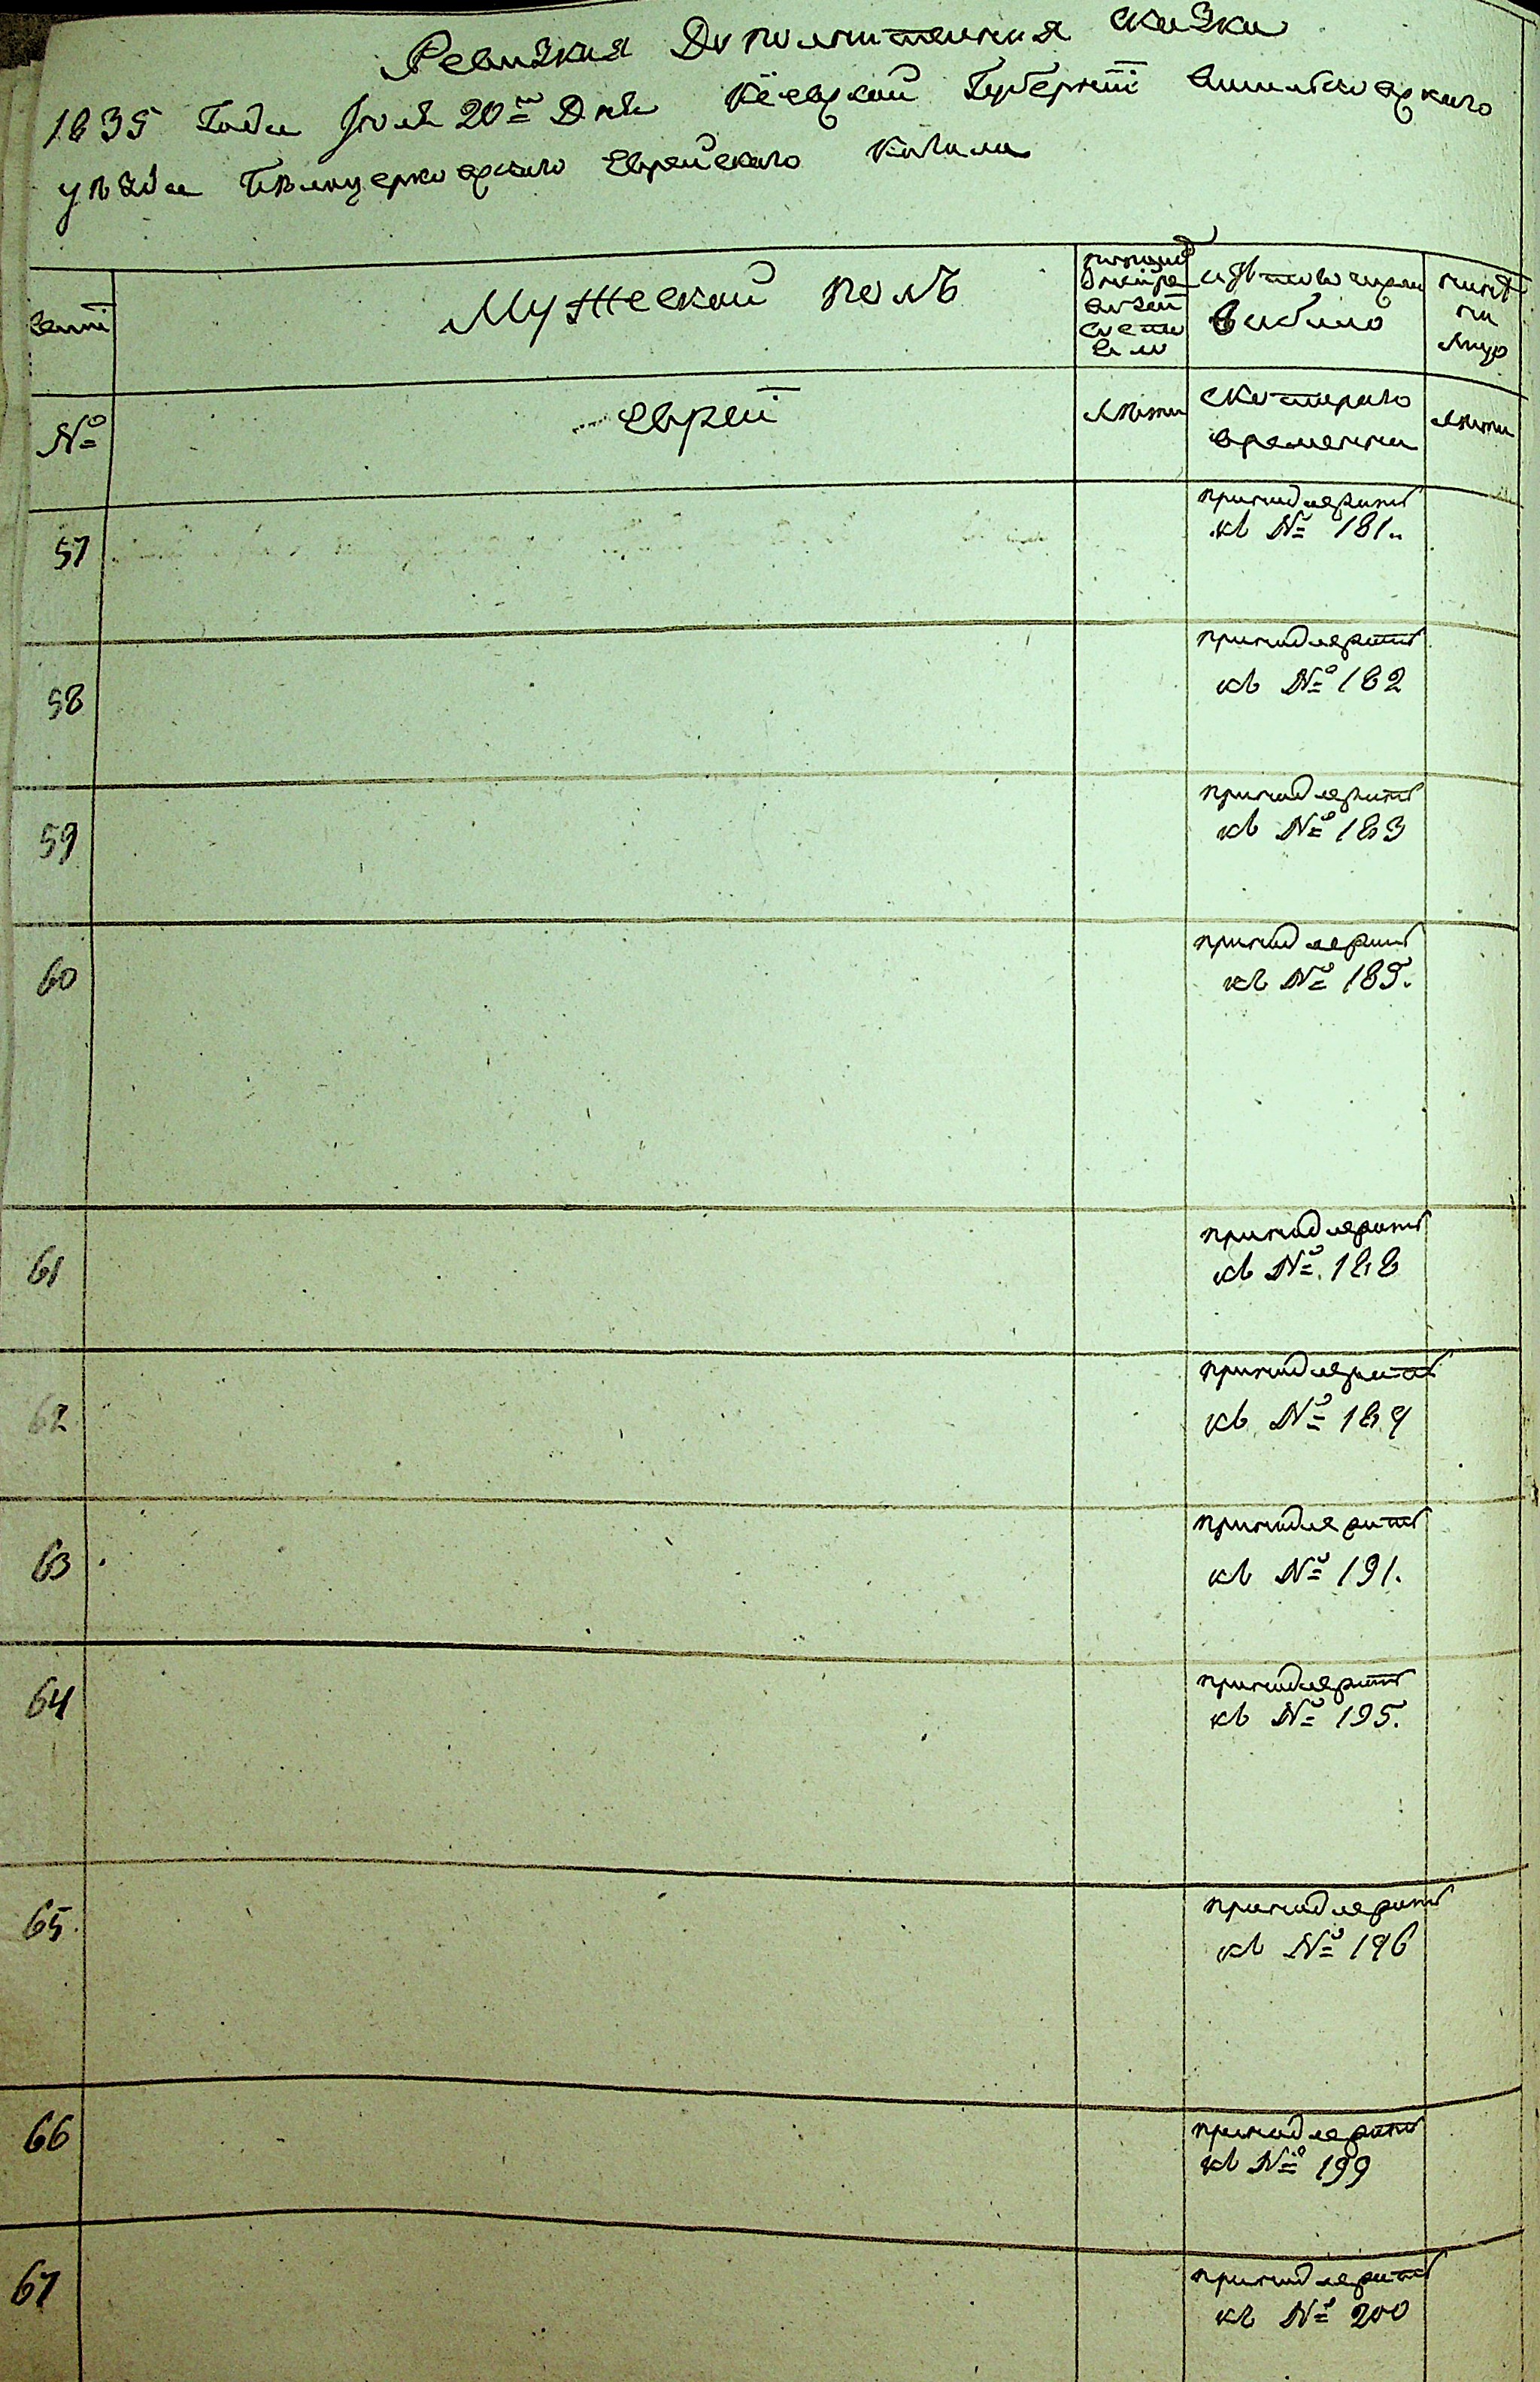 Ревизкая Дополнителная сказка
1835 Года Іюля 20го Дня Кіевской Губерніи Василковскаго
уезда Белоцерковскаго Еврейскаго Кагала
Мужеской полъ
изтого числа
выбыло
ныне
на
лицо
№
Евреи
лета
скотораго
времени
лета
57
принадлежит
къ № 181.
58
принадлежит
къ № 182
59
принадлежит
къ № 183
60
принадлежит
къ № 185.
61
принадлежит
къ № 188
62
принадлежит
къ № 189
63
принадлежит
къ № 191.
64
принадлежит
къ № 195.
65
принадлежит
къ № 196
66
принадлежит
къ № 199
67
принадлежит
къ № 200